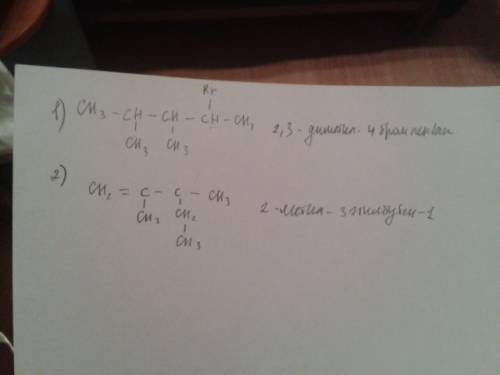 1)
Br
CH3 - CH - CH - CH - CH3
CH3 CH3
2,3 - диметил - 4 бромпентан
2)
CH2 = C - C - CH3
CH3 CH2
CH3
2 - метил - 3 этилбутен - 1